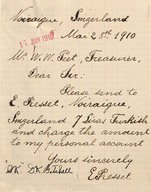 Noiraigue, Switzerland
Mar 28th 1910
Mr. W. W. Peet, Treasurer,
Dear Sir:
Please send to
E. Resset, Noiraigue,
Switzerland 7 Liras Turkish
and charge the amount
to my personal account
Yours sincerely
E. Resset